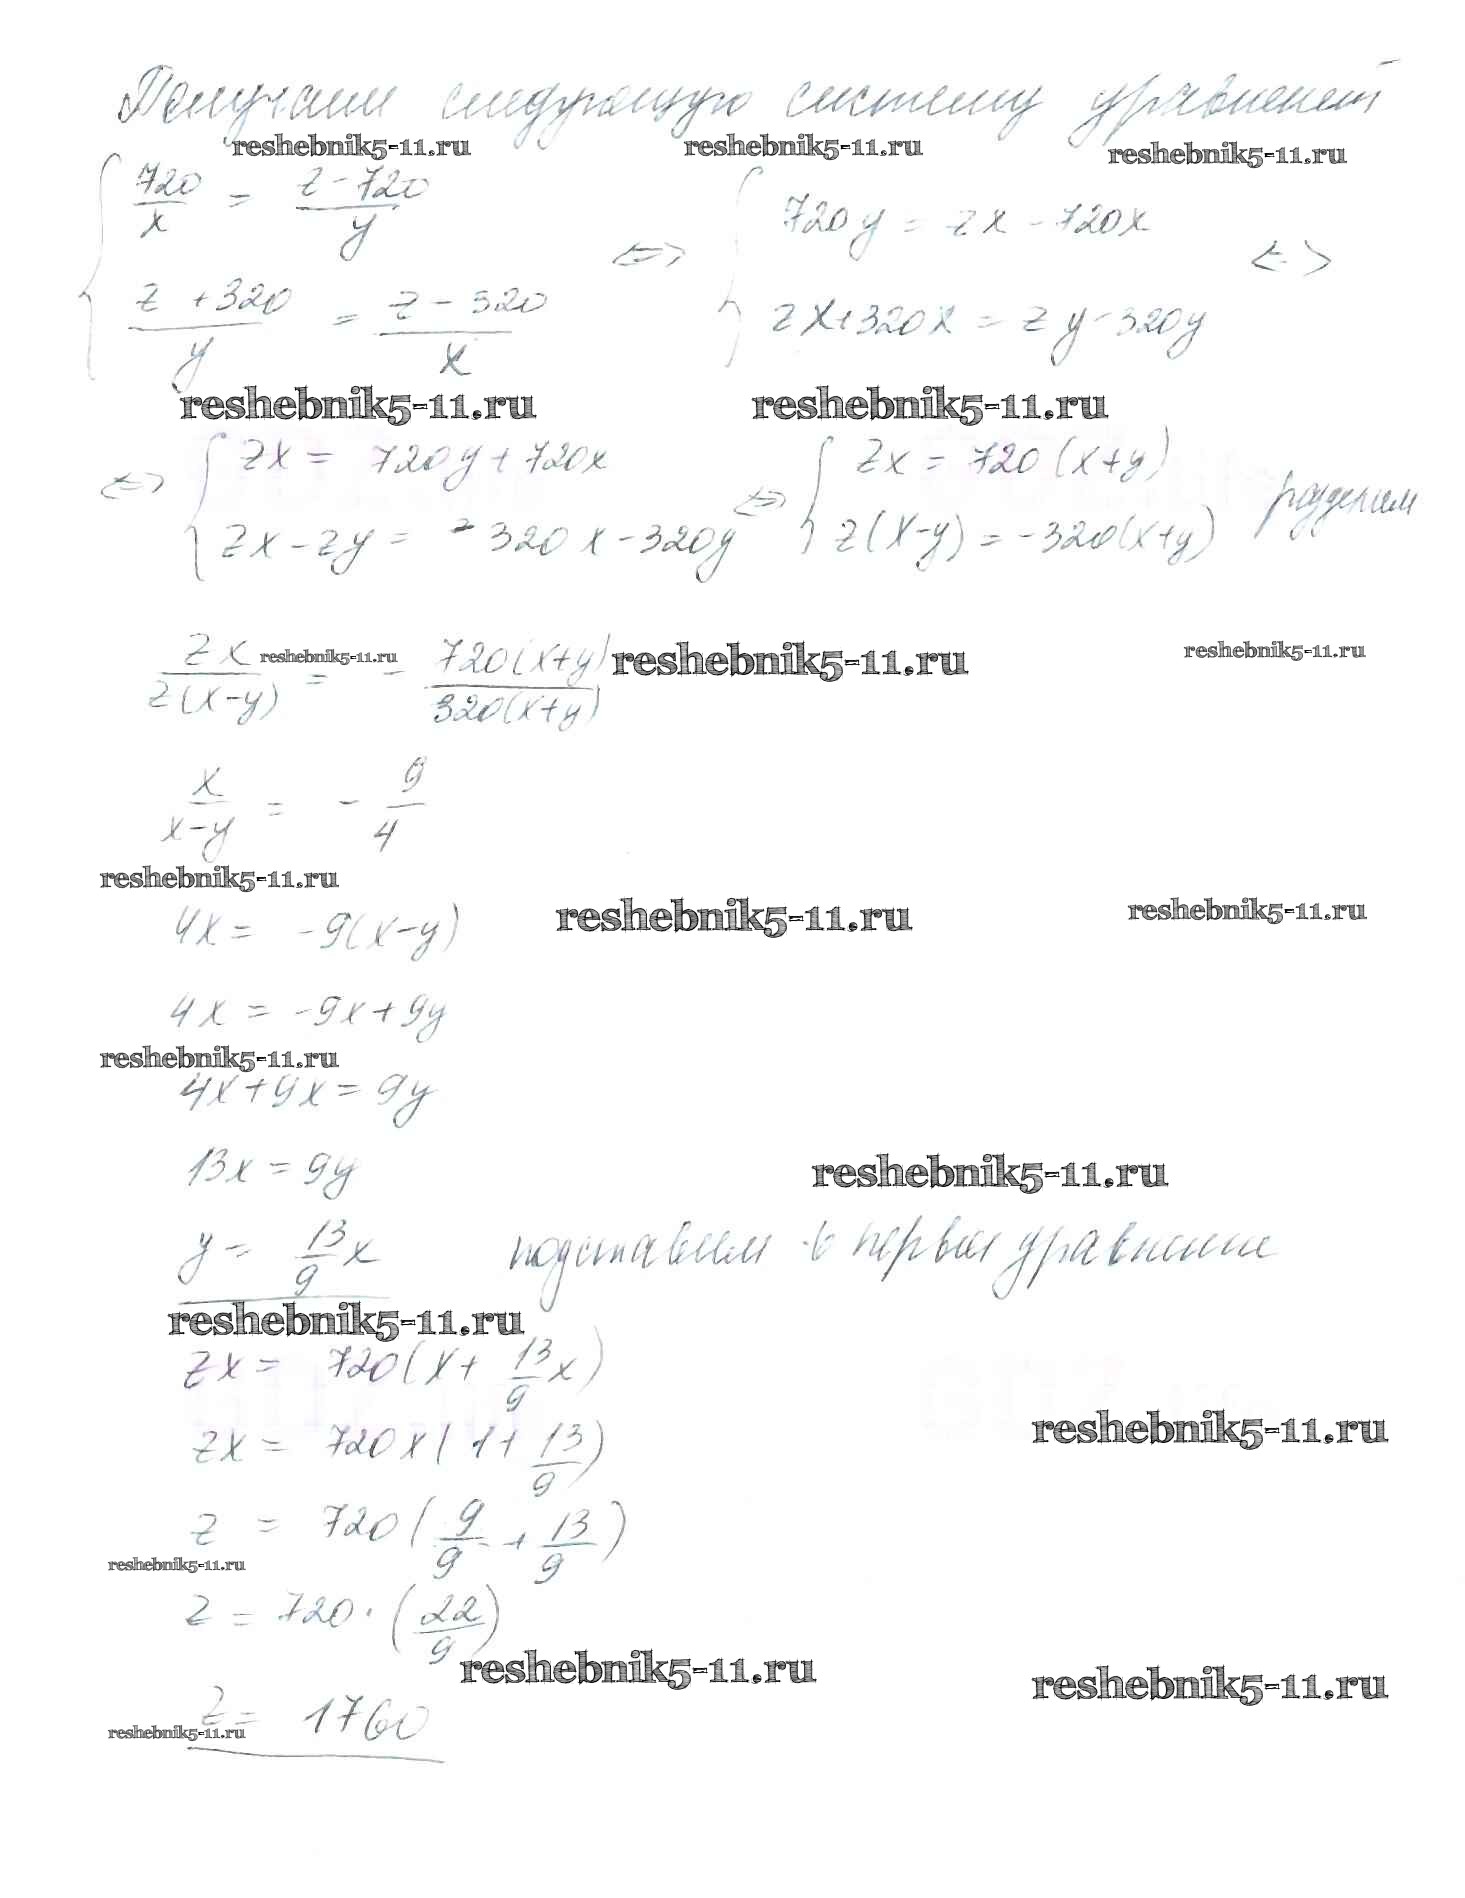 Получаем следующую систему уравнений
reshebnik5-11.ru reshebnik5-11.ru reshebnik5-11.ru
{ 720/x = (z-720)/y <=> { 720y = zx - 720x <=>
(z+320)/y = (z-320)/x zx+320x = zy-320y
reshebnik5-11.ru reshebnik5-11.ru
<=> { zx = 720y+720x <=> { zx = 720(x+y) разделим
zx-zy = -320x-320y z(x-y) = -320(x+y)
zx/z(x-y) = - 720(x+y)/320(x+y)
reshebnik5-11.ru reshebnik5-11.ru reshebnik5-11.ru
x/(x-y) = - 9/4
reshebnik5-11.ru
4x = -9(x-y)
reshebnik5-11.ru reshebnik5-11.ru
4x = -9x+9y
reshebnik5-11.ru
4x+9x = 9y
13x = 9y
reshebnik5-11.ru
y = 13/9 x подставим в первое уравнение
reshebnik5-11.ru
zx = 720(x+ 13/9 x)
zx = 720x(1+ 13/9)
reshebnik5-11.ru
z = 720(9/9 + 13/9)
reshebnik5-11.ru
z = 720·(22/9)
reshebnik5-11.ru reshebnik5-11.ru
z = 1760
reshebnik5-11.ru